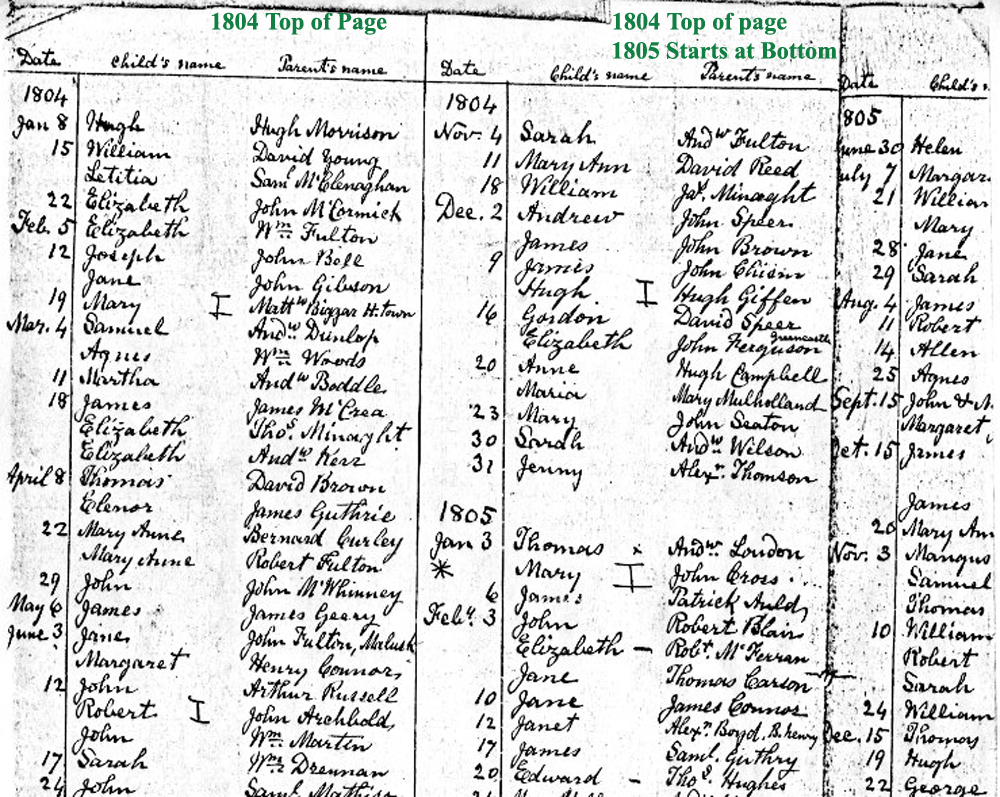 1804 Top of Page
Date Child's name Parent's name
1804
Jan 8 Hugh Hugh Morrison
15 William David Young
Letitia Saml McClenaghan
22 Elizabeth John McCormick
Feb. 5 Elizabeth Wm Fulton
12 Joseph John Bell
Jane John Gibson
19 Mary I Mattw Biggar H. town
Mar. 4 Samuel Andw Dunlop
Agnes Wm Woods
11 Martha Andw Boddle
18 James James McCrea
Elizabeth Thos. Minaght
Elizabeth Andw Kerr
April 8 Thomas David Brown
Elenor James Guthrie
22 Mary Anne Bernard Curley
Mary Anne Robert Fulton
29 John John McWhinney
May 6 James James Geery
June 3 Jane John Fulton, Malusk
Margaret Henry Connor
12 John Arthur Russell
Robert I John Archbold
John Wm Martin
17 Sarah Wm Drennan
24 John Saml.
1804 Top of page
1805 Starts at Bottom
Date Child's name Parent's name
1804
Nov. 4 Sarah Andw Fulton
11 Mary Ann David Reed
18 William Jas. Minaght
Dec. 2 Andrew John Speer
James John Brown
9 James John Chisim
Hugh I Hugh Giffen
16 Gordon David Speer
Elizabeth John Ferguson Greencastle
20 Anne Hugh Campbell
Maria Mary Mulholland
23 Mary John Seaton
30 Sarah Andw. Wilson
31 Jenny Alexr. Thomson
1805
Jan 3 Thomas Andw. Loudon
* Mary I John Cross
6 James Patrick Auld
Feby. 3 John Robert Blair
Elizabeth – Robt. McFerran
Jane Thomas Carson
10 Jane James Connor
12 Janet Alexr Boyd, B. henry
17 James Saml. Guthry
20 Edward – Thos. Hughes
Date Child's n
805
June 30 Helen
July 7 Margar
21 William
Mary
28 Jane
29 Sarah
Aug. 4 James
11 Robert
14 Allen
25 Agnes
Sept. 15 John & M
Margaret
Oct. 15 James
James
20 Mary Ann
Nov. 3 Mangus
Samuel
Thomas
10 William
Robert
Sarah
24 William
Dec. 15 Thomas
19 Hugh
22 George